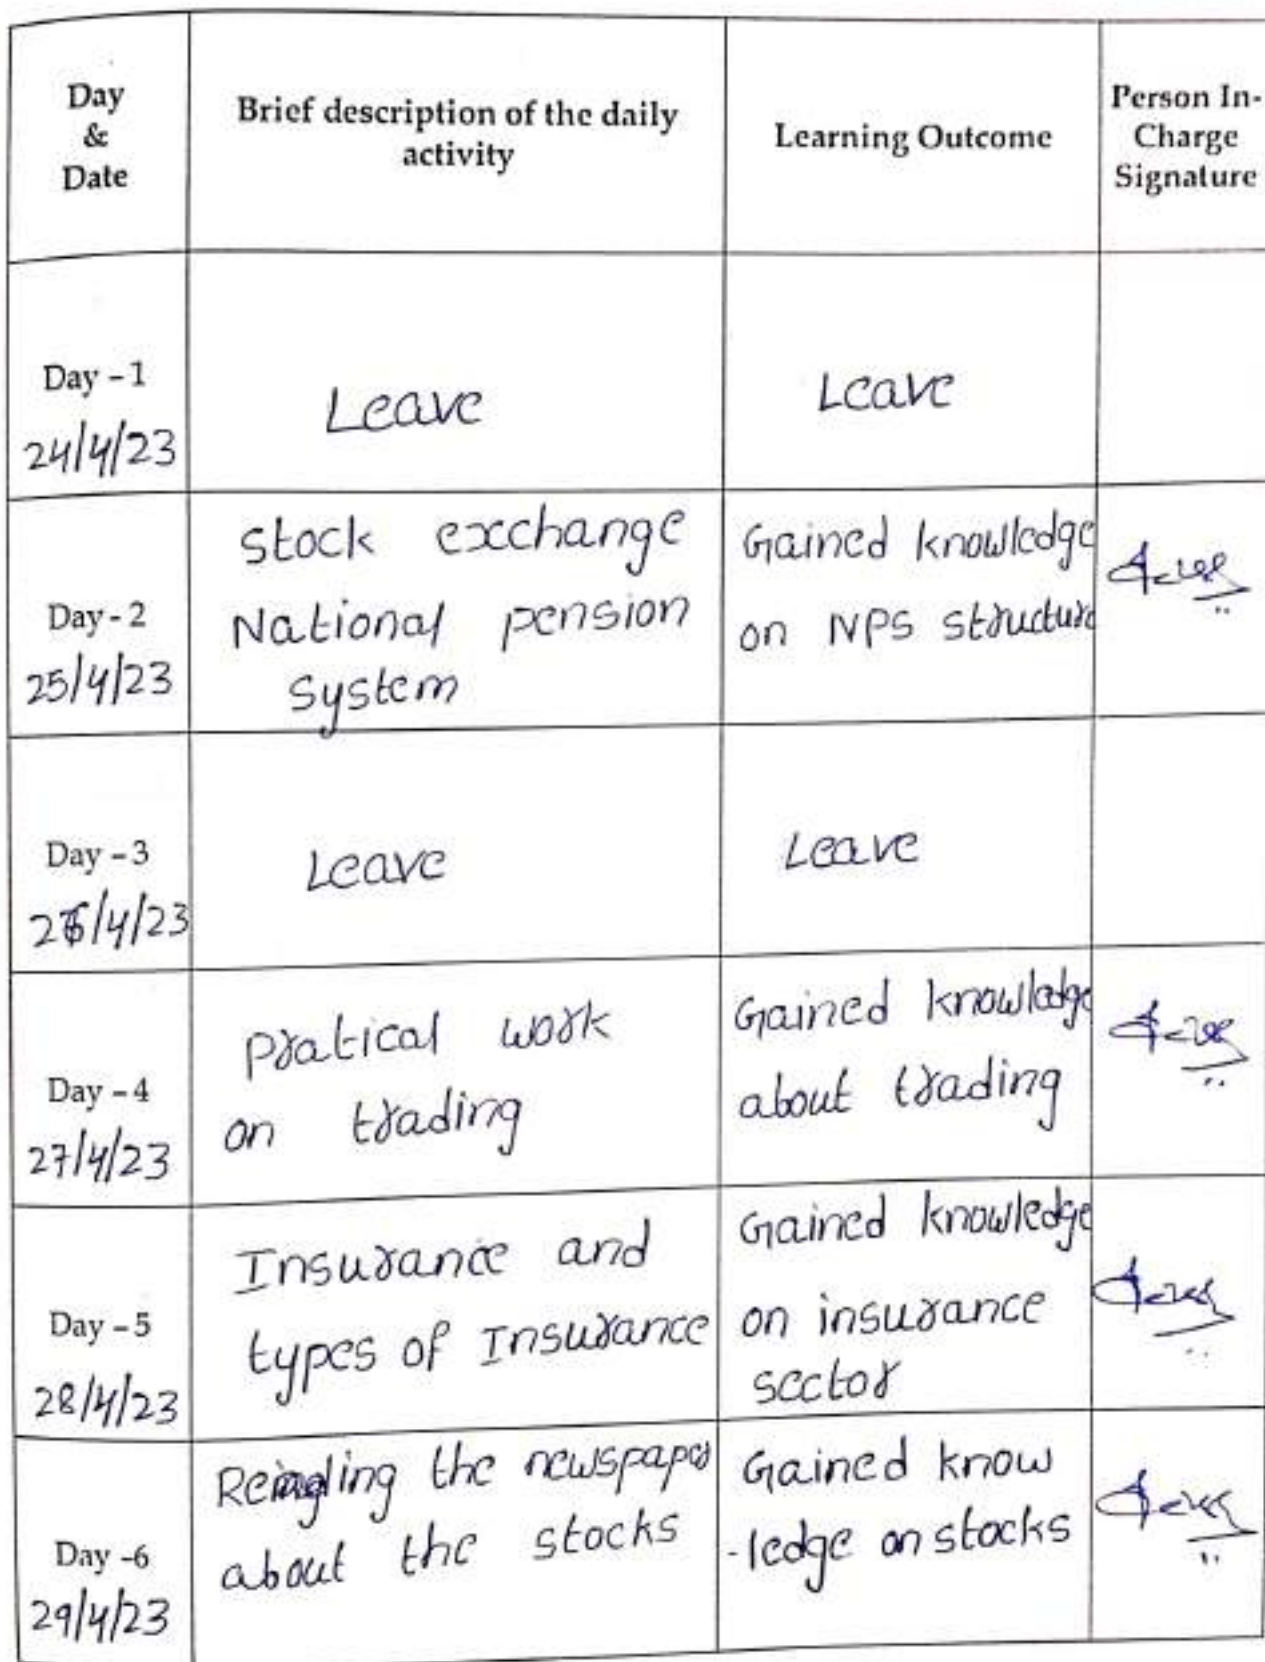 Day
&
Date
Brief description of the daily
activity
Learning Outcome
Person In-
Charge
Signature
Day - 1
24/4/23
Leave
Leave
Day - 2
25/4/23
stock exchange
National pension
system
Gained knowledge
on NPS structure
Day - 3
26/4/23
Leave
Leave
Day - 4
27/4/23
pratical work
on trading
Gained knowledge
about trading
Day - 5
28/4/23
Insurance and
types of Insurance
Gained knowledge
on insurance
sector
Day -6
29/4/23
Reading the newspaper
about the stocks
Gained know
-ledge on stocks